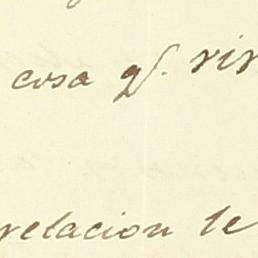 cosa q.e vir
relacion te